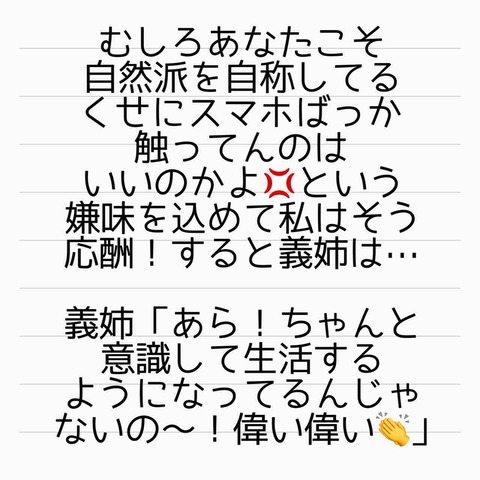 むしろあなたこそ
自然派を自称してる
くせにスマホばっか
触ってんのは
いいのかよ💢という
嫌味を込めて私はそう
応酬！すると義姉は…
義姉「あら！ちゃんと
意識して生活する
ようになってるんじゃ
ないの〜！偉い偉い👏」